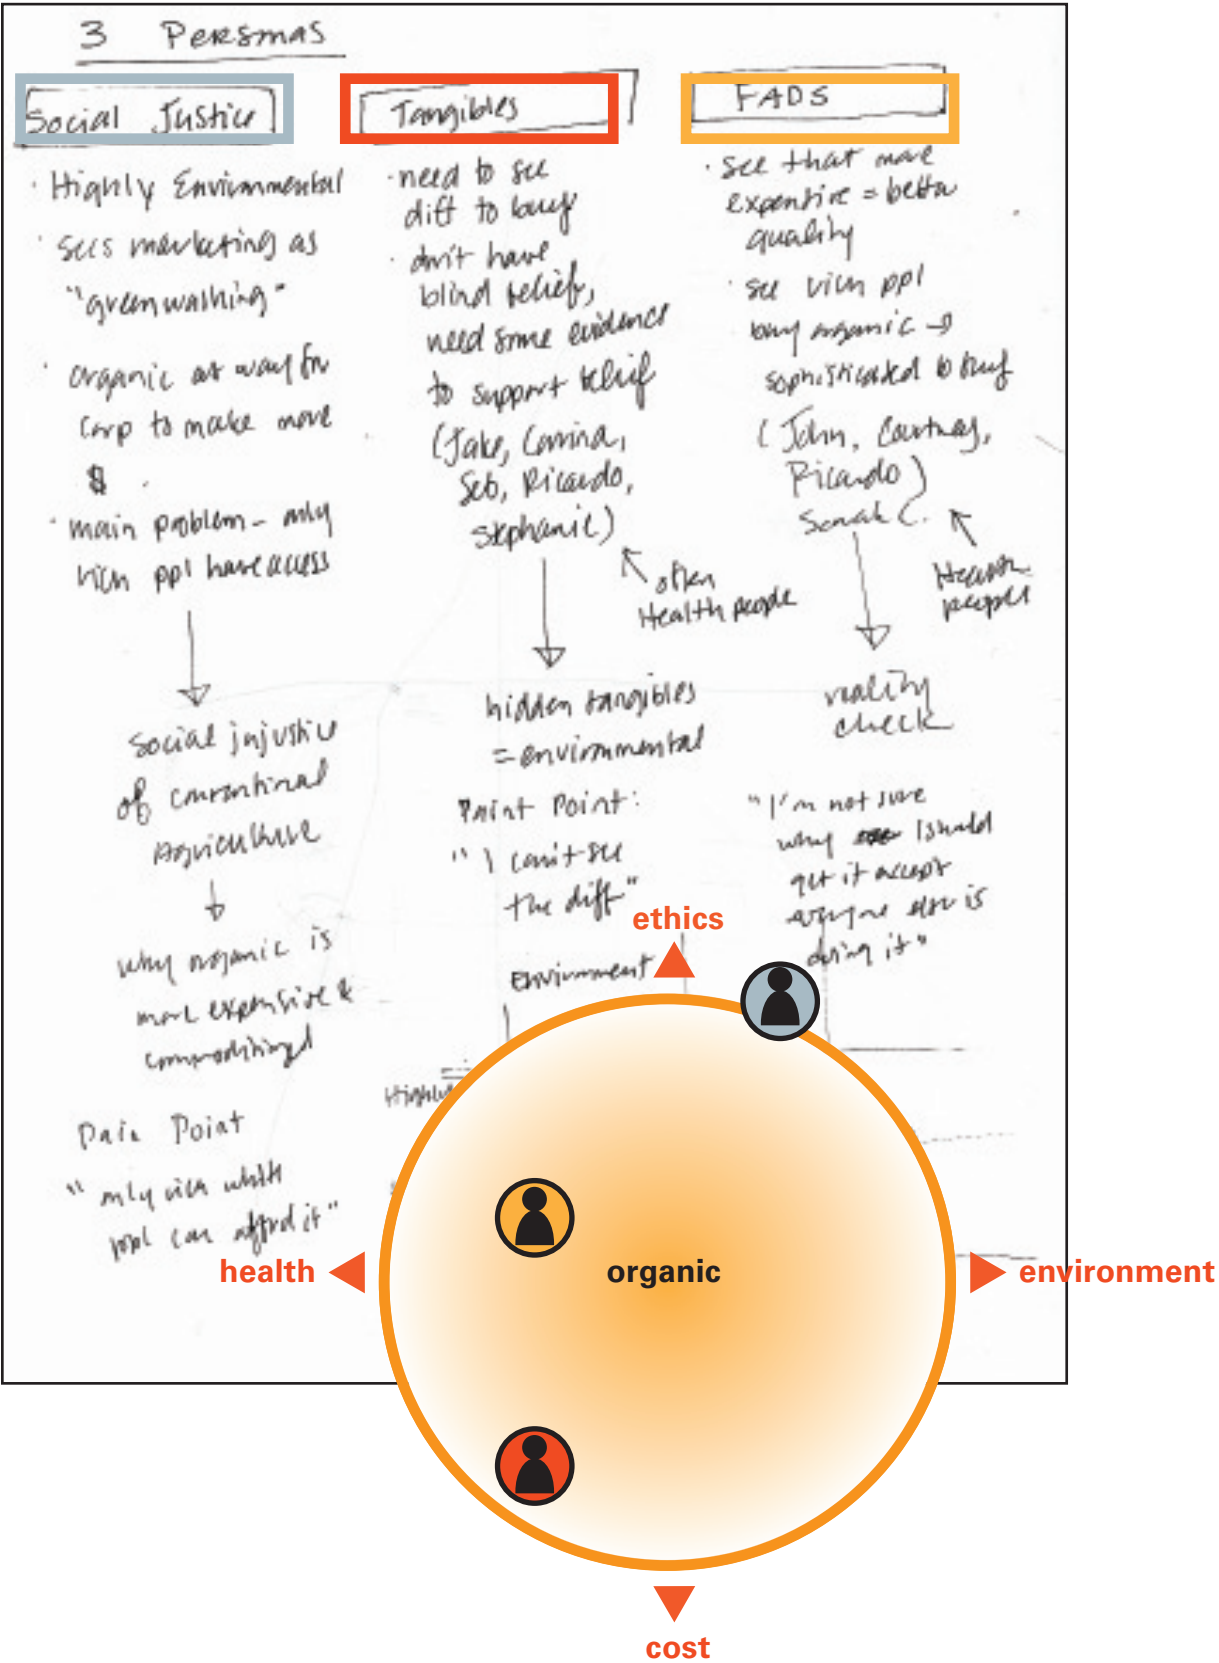 3 Personas
Social Justice
· Highly Environmental
· sees marketing as
"greenwashing"
· organic as way for
corp to make more
$.
· main problem - only
rich ppl have access
social injustice
of conventional
Agriculture
why organic is
more expensive &
commoditized
Pain Point
"only rich white
ppl can afford it"
Tangibles
· need to see
diff to buy
· don't have
blind belief,
need some evidence
to support belief
(Jake, Corrina,
Seb, Ricardo,
Stephanie)
often
Health people
hidden tangibles
= environmental
Paint Point:
"I can't see
the diff"
Environment
Highly
FADS
· see that more
expensive = better
quality
· see rich ppl
buy organic →
sophisticated to buy
(John, Courtney,
Ricardo)
Sarah C.
Health
people
reality
check
"I'm not sure
why I should
get it accept
everyone else is
doing it"
ethics
health
organic
environment
cost